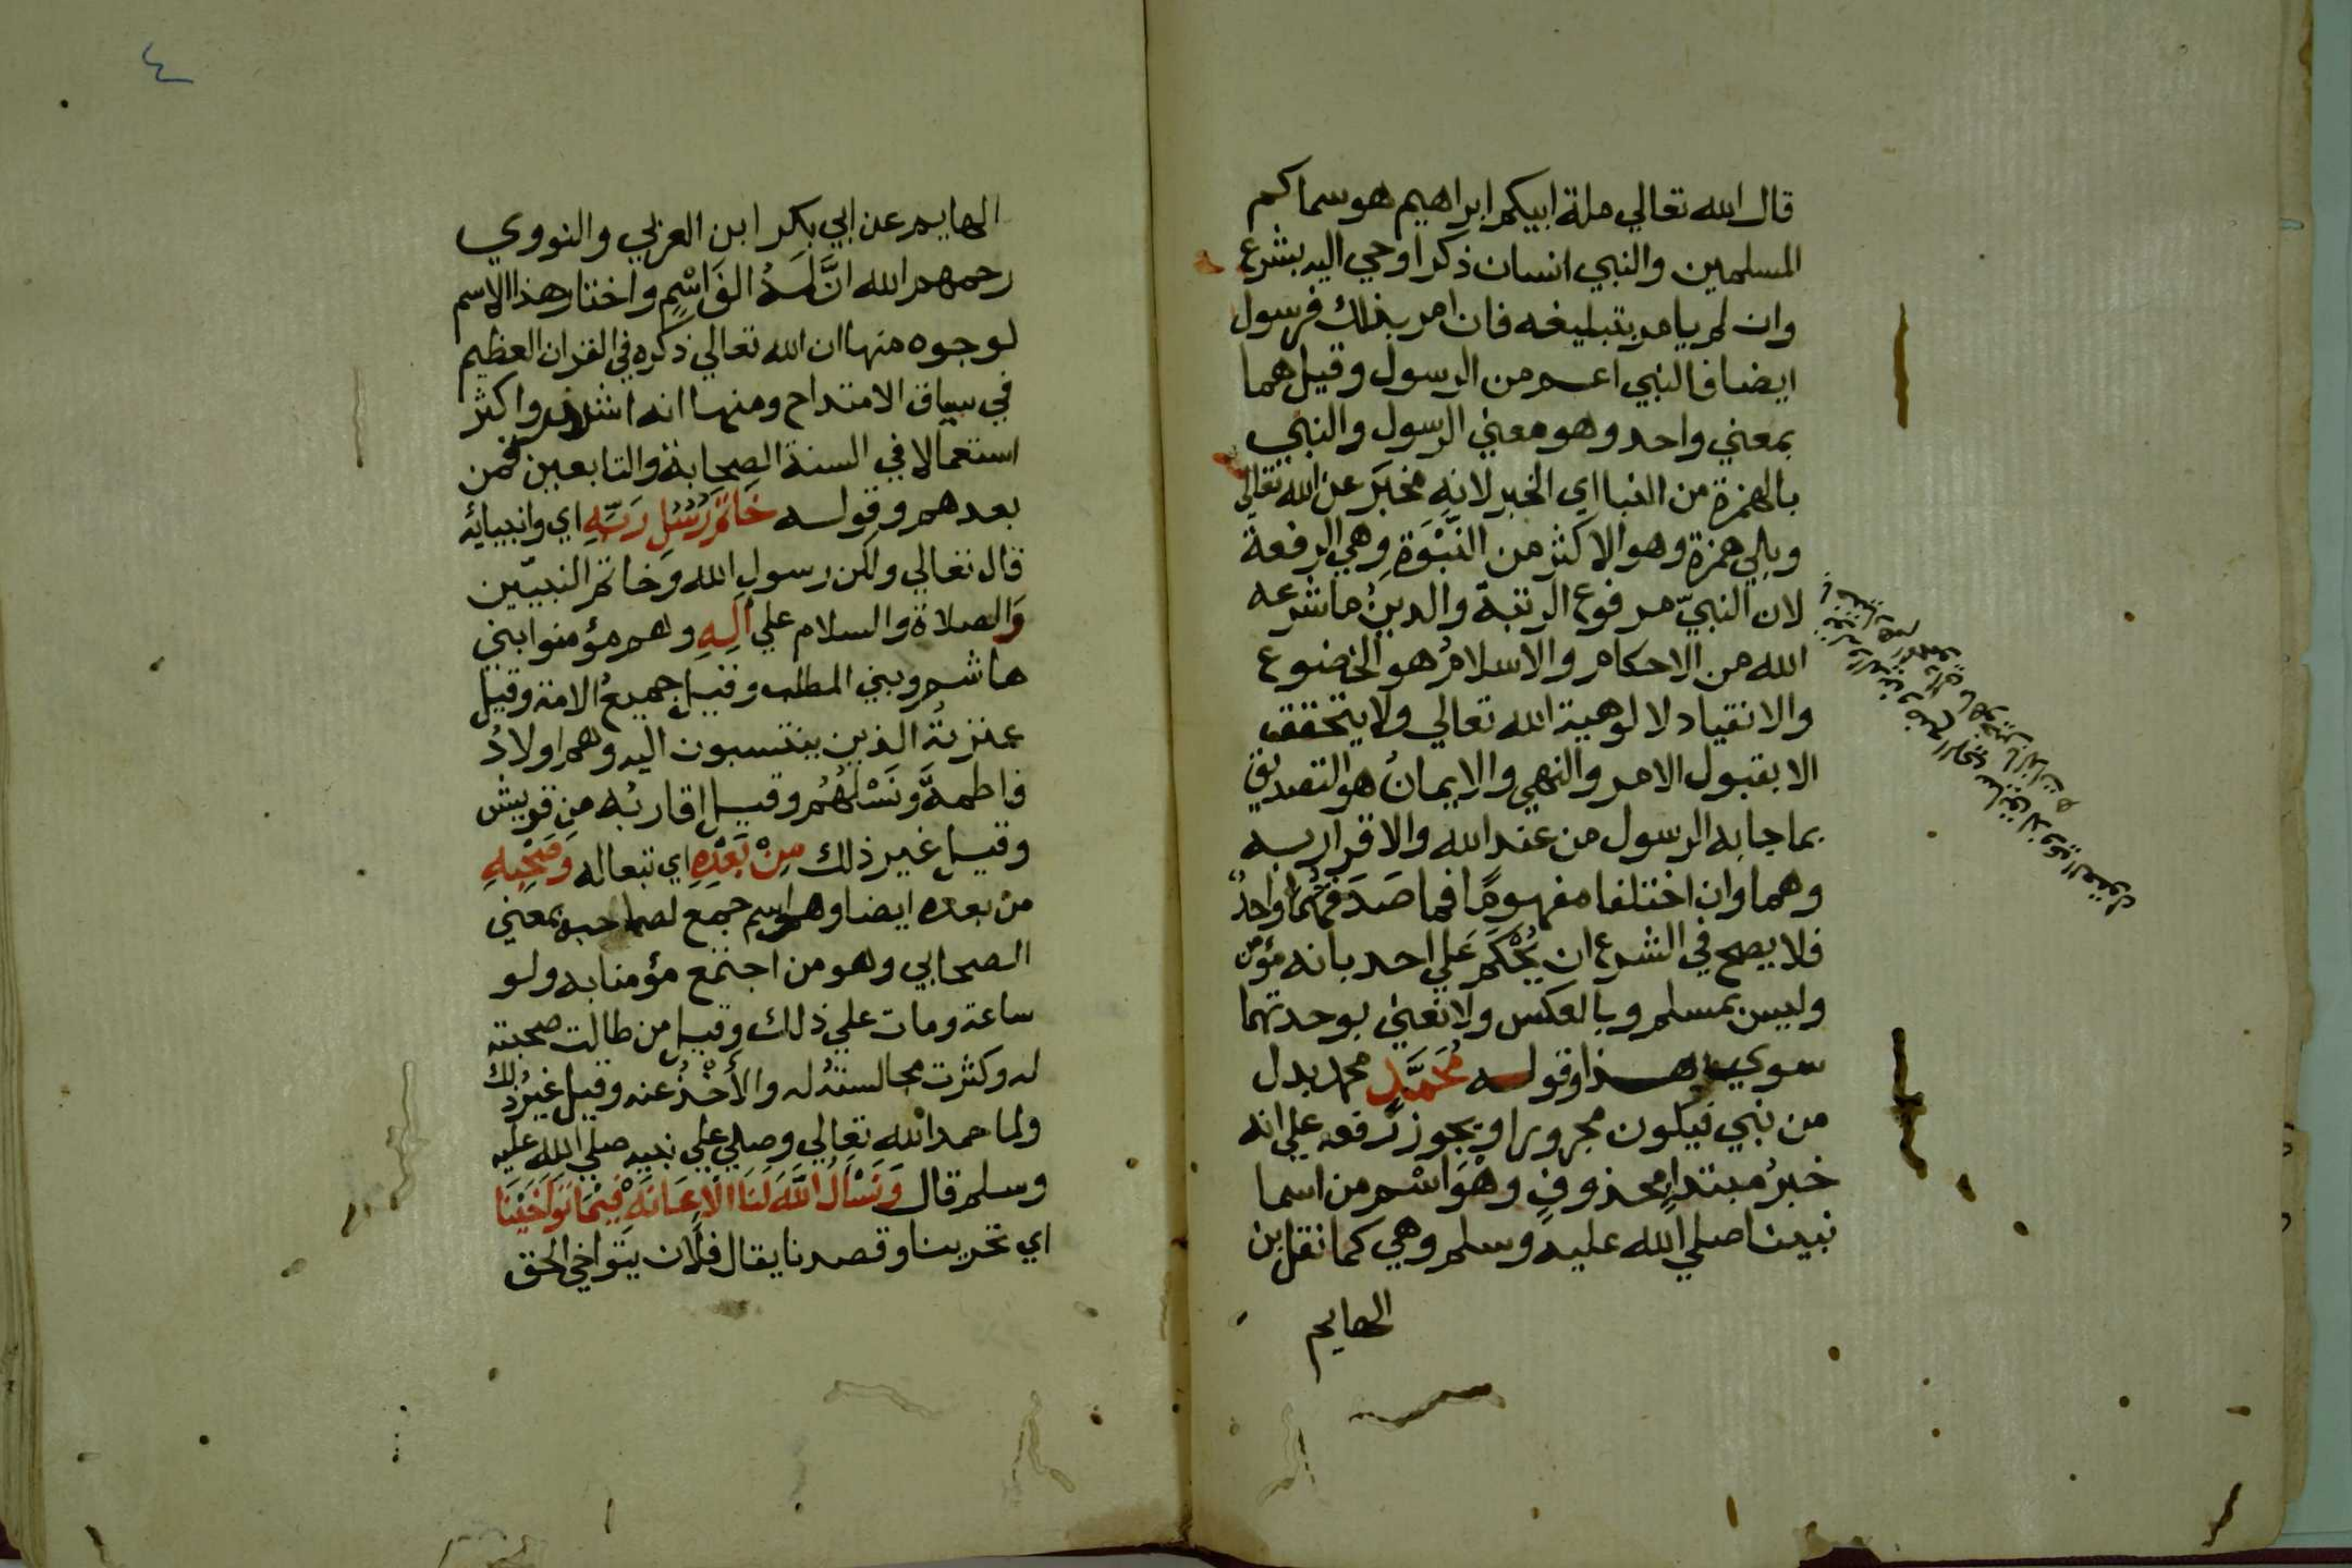 قال الله تعالي ملة ابيكم ابراهيم هو سماكم
المسلمين والنبي انسان ذكر اوحي اليه بشرع
وان لم يامر بتبليغه فان امر بذلك فرسول
ايضا فالنبي اعم من الرسول وقيل هما
بمعني واحد وهو معني الرسول والنبي
بالهمزة من النبا اي الخبر لانه مخبَر عن الله تعالي
وبلي همزة وهو الاكثر من النَّبْوَةِ وهي الرفعة
لان النبيّ مرفوع الرتبة والدينُ ما شرعه
الله من الاحكام والاسلامُ هو الخضوع
والانقياد لالوهية الله تعالي ولا يتحقق
الا بقبول الامر والنهي والايمانُ هو التصديق
بما جا به الرسول من عند الله والاقرار به
وهما وان اختلفا مفهومًا فما صَدَقهُما واحدٌ
فلا يصح في الشرع ان يُحْكَم عَلي احد بانه مؤمن
وليس بمسلم وبالعكس ولا نعني بوحدتهما
سوي هذا وقوله مُحَمَّدٍ محمد بدل
من نبي فيكون مجرورا ويجوز رفعه علي انه
خبرُ مبتداٍ محذوفٍ وهْوَ اسْم من اسما
نبينا صلي الله عليه وسلم وهي كما نقل بن
الهايم
٤
الهايم عن ابي بكر ابن العربي والنووي
رحمهم الله انَّ لَهُ الفَ اسْمٍ واختار هذا الاسم
لوجوه منها ان الله تعالي ذكره في القران العظيم
في سياق الامتداح ومنها انه اشهر واكثر
استعمالا في السنة الصحابة والتابعين فمن
بعدهم وقوله خَاتَمِ رُسُلِ رَبِّهِ اي وانبيائه
قال تعالي ولكن رسول الله وَخاتم النبيّين
وَالصلاة والسلام علي آلِهِ وهم مؤمنوا بني
هاشم وبني المطلب وقيل جميعُ الامة وقيل
عترتهُ الذين ينتسبون اليه وهم اولادُ
فاطمةَ ونَسْلُهُم وقيل اقاربُه من قريش
وقيل غير ذلك مِنْ بَعْدِهِ اي تبعا له وَصَحْبِهِ
من بعده ايضا وهو اسم جمع لصاحب بمعني
الصحابي وهو من اجتمع مؤمنا به ولو
ساعة ومات علي ذلك وقيل من طالت صحبته
له وكثرت مجالستهُ له والأخْذُ عنه وقيل غيرُ ذلك
ولما حمد الله تعالي وصلي علي نبيه صلي الله عليه
وسلم قال وَنَسْأَلُ اللَّهَ لَنَا الْاِعَانَهْ فِيْمَا تَوَاخَيْنَا
اي تحرينا وقصدنا يقال فلان يتواخي الحق